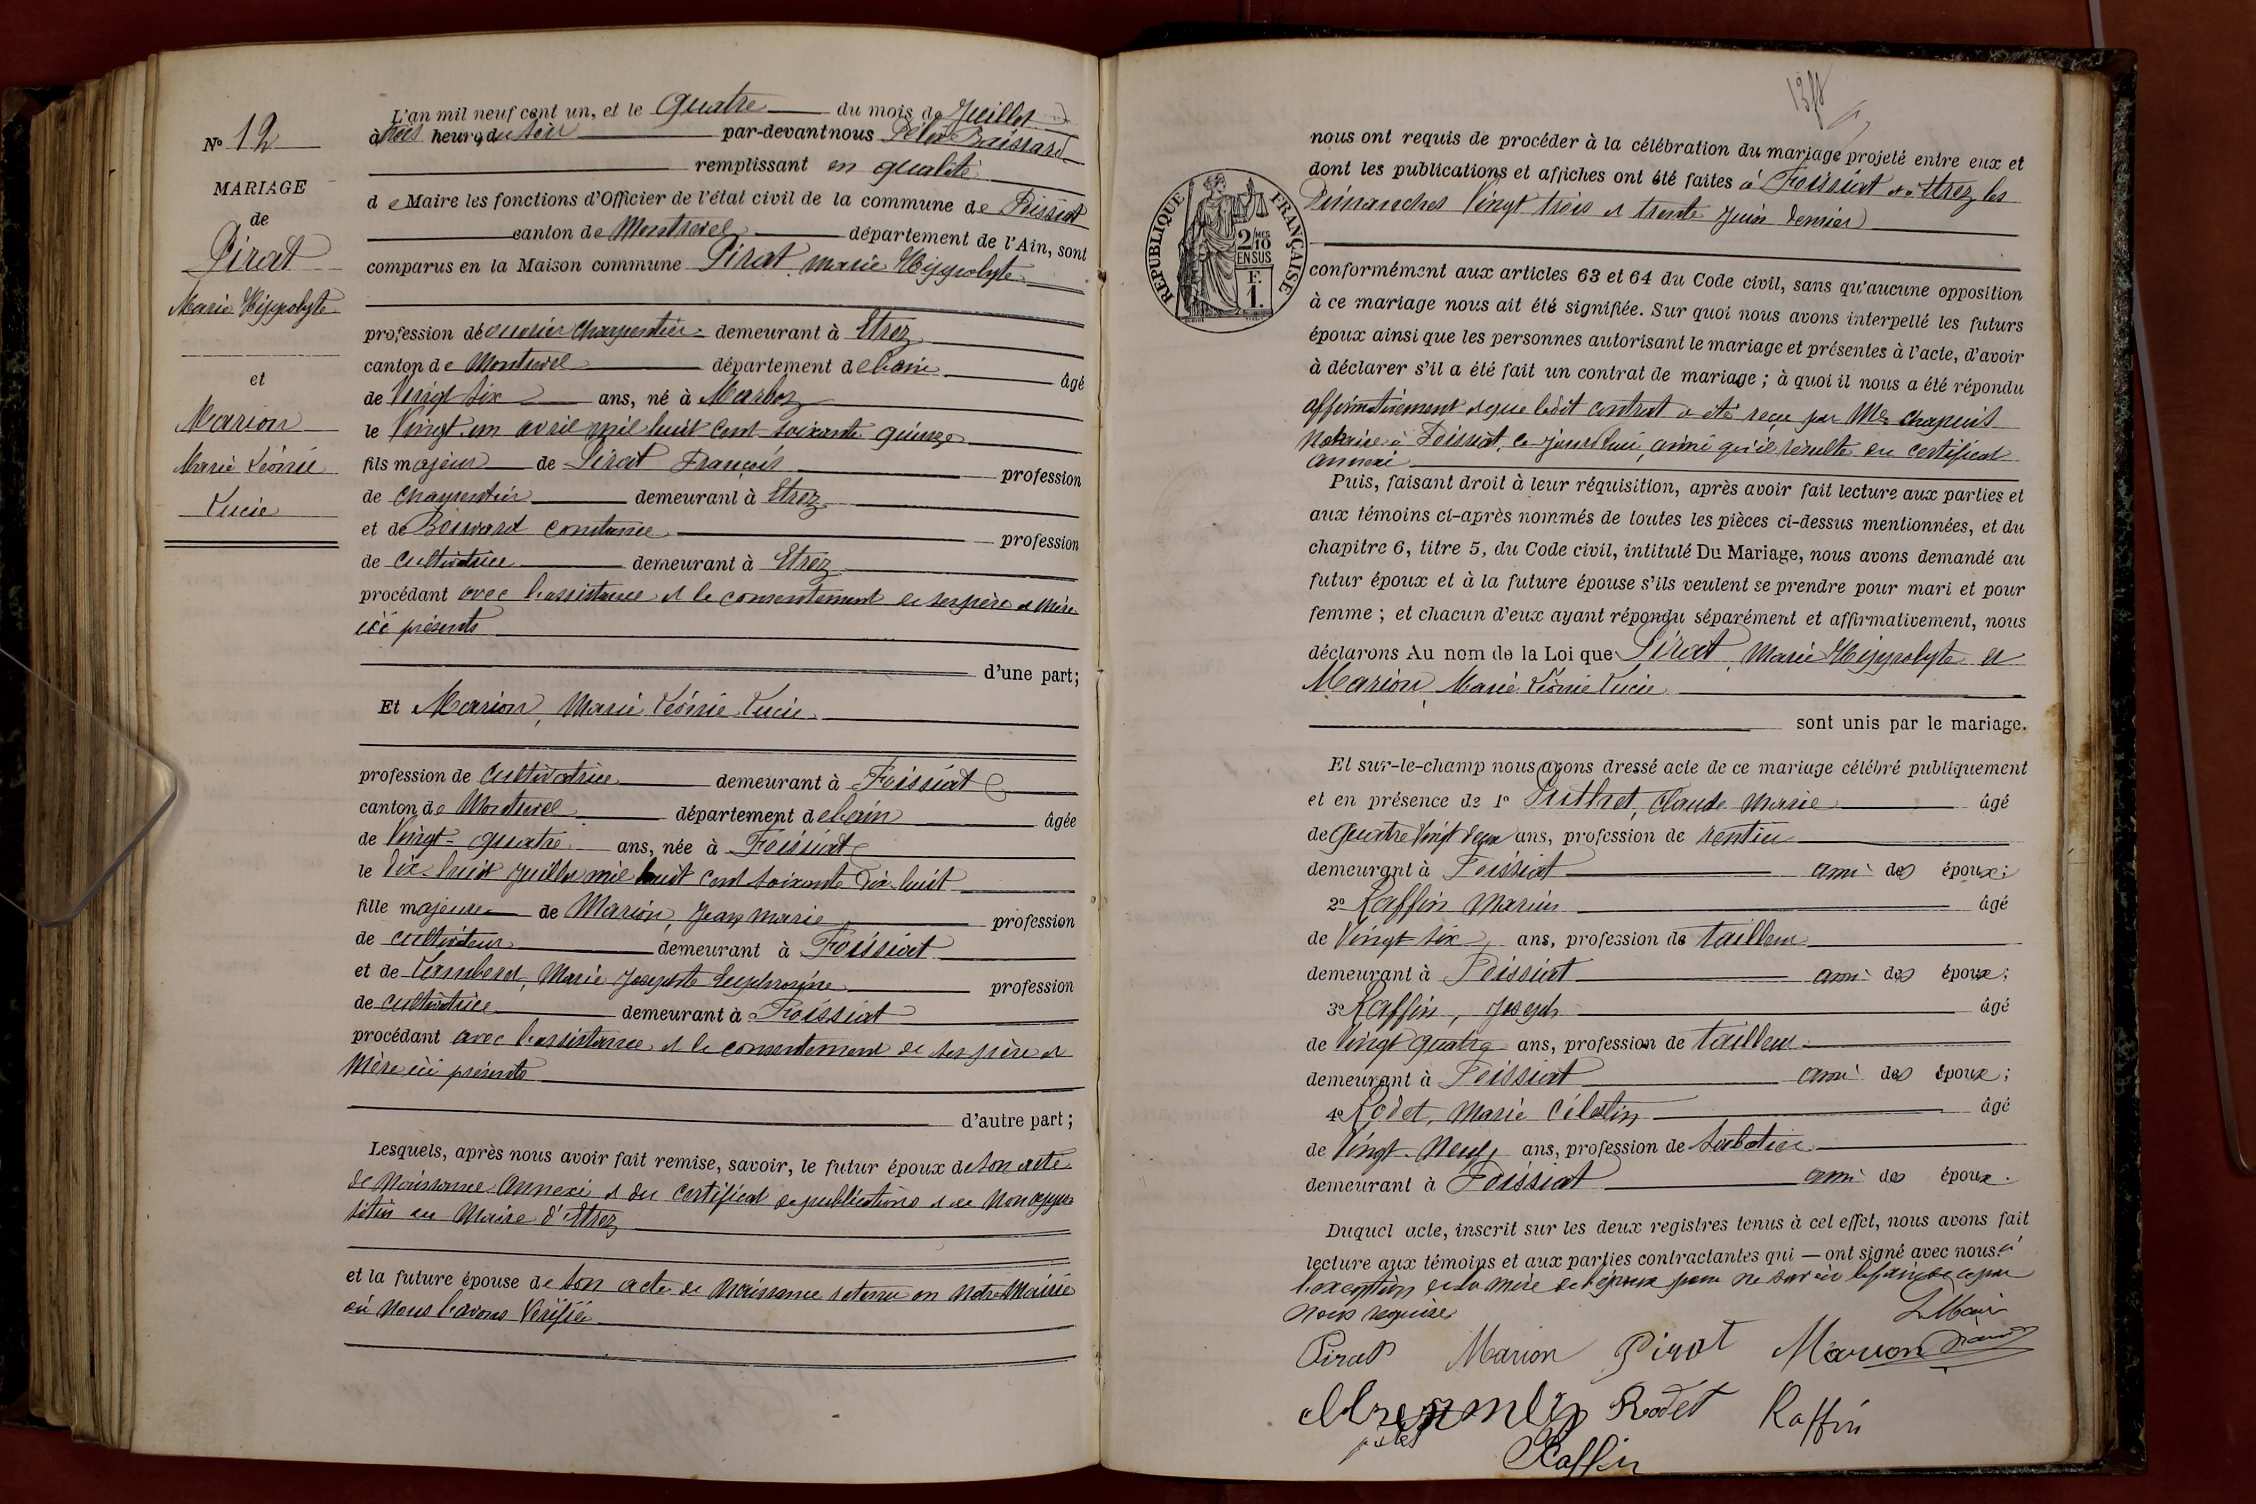 L'an mil neuf cent un, et le quatre du mois de Juillet
à trois heures du soir par-devant nous Félix
remplissant en qualité
de Maire les fonctions d'Officier de l'état civil de la commune de Foissiat
canton de Montrevel département de l'Ain, sont
comparus en la Maison commune Pirat, Marie Hippolyte
profession de ouvrier charpentier demeurant à Etrez
canton de Montrevel département de l'ain âgé
de Vingt six ans, né à Marboz
le Vingt un avril mil huit cent soixante quinze
fils majeur de Pirat François profession
de charpentier demeurant à Etrez
et de Bouvard Constance profession
de cultivatrice demeurant à Etrez
procédant avec l'assistance et le consentement de ses père et mère
ici présents
d'une part;
Et Marion, Marie Léonie Lucie
profession de cultivatrice demeurant à Foissiat
canton de Montrevel département de l'ain âgée
de Vingt-quatre ans, née à Foissiat
le Dix-huit Juillet mil huit cent soixante Dix-huit
fille majeure de Marion, Jean Marie profession
de cultivateur demeurant à Foissiat
et de Lambert, Marie Josephte Euphrosine profession
de cultivatrice demeurant à Foissiat
procédant avec l'assistance et le consentement de ses père et
mère ici présents
d'autre part;
Lesquels, après nous avoir fait remise, savoir, le futur époux de son acte
de Naissance annexé et du certificat de publications et de non oppo
sition du Maire d'Etrez
et la future épouse de son acte de Naissance retenu en notre Mairie
où nous l'avons Vérifié
No 12
MARIAGE
de
Pirat
Marie Hippolyte
et
Marion
Marie Léonie
Lucie
RÉPUBLIQUE FRANÇAISE
2/10
EN SUS
F.
1.
nous ont requis de procéder à la célébration du mariage projeté entre eux et
dont les publications et affiches ont été faites à Foissiat et à Etrez les
Dimanches Vingt trois et trente Juin dernier
conformément aux articles 63 et 64 du Code civil, sans qu'aucune opposition
à ce mariage nous ait été signifiée. Sur quoi nous avons interpellé les futurs
époux ainsi que les personnes autorisant le mariage et présentes à l'acte, d'avoir
à déclarer s'il a été fait un contrat de mariage; à quoi il nous a été répondu
affirmativement et que ledit contrat a été reçu par Me Chapuis
Notaire à Foissiat, ce jourd'hui, ainsi qu'il résulte du certificat
annexé
Puis, faisant droit à leur réquisition, après avoir fait lecture aux parties et
aux témoins ci-après nommés de toutes les pièces ci-dessus mentionnées, et du
chapitre 6, titre 5, du Code civil, intitulé Du Mariage, nous avons demandé au
futur époux et à la future épouse s'ils veulent se prendre pour mari et pour
femme; et chacun d'eux ayant répondu séparément et affirmativement, nous
déclarons Au nom de la Loi que Pirat, Marie Hippolyte et
Marion, Marie Léonie Lucie
sont unis par le mariage.
Et sur-le-champ nous avons dressé acte de ce mariage célébré publiquement
et en présence de 1º Claude Marie âgé
de quatre Vingt deux ans, profession de rentier
demeurant à Foissiat ami des époux;
2º Raffin Marius âgé
de Vingt six ans, profession de tailleur
demeurant à Foissiat ami des époux;
3º Raffin, Joseph âgé
de Vingt quatre ans, profession de tailleur
demeurant à Foissiat ami des époux;
4º Rodet, Marie Célestin âgé
de Vingt-Neuf ans, profession de sabotier
demeurant à Foissiat ami des époux.
Duquel acte, inscrit sur les deux registres tenus à cet effet, nous avons fait
lecture aux témoins et aux parties contractantes qui — ont signé avec nous à
l'exception de la mère de l'époux pour ne savoir le faire de ce par
nous requise
Le Maire
Pirat Marion Pirat Marion
Rodet Raffin
Raffin